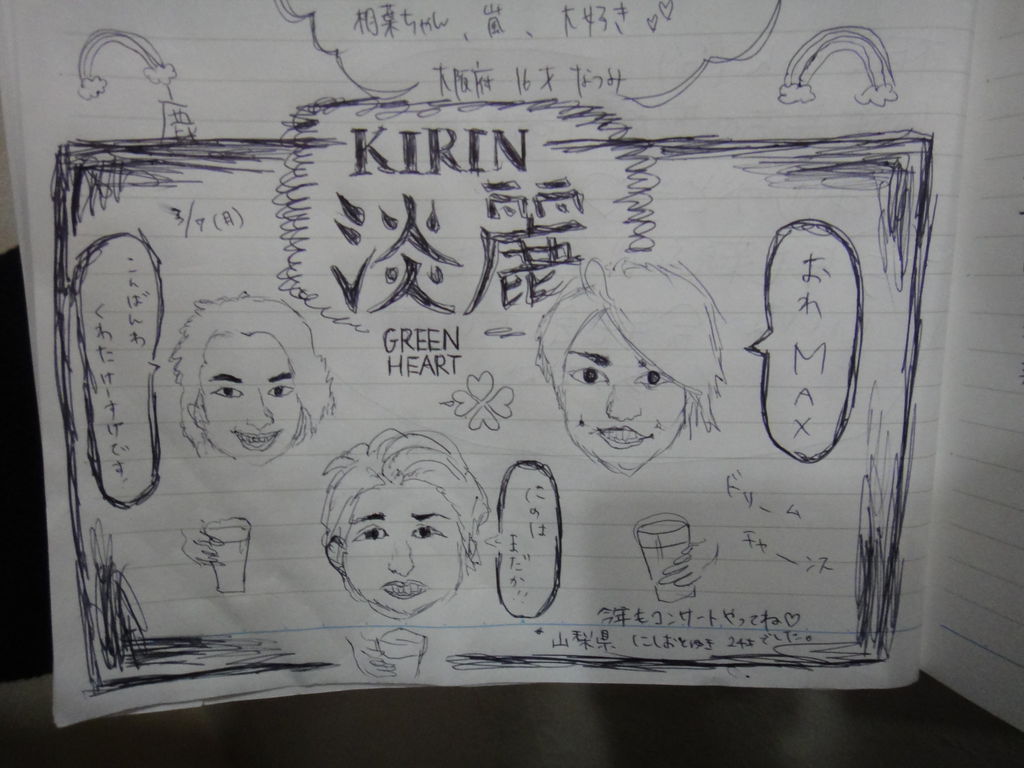 相葉ちゃん、嵐、大好き♡♡
大阪府 16才 なつみ
KIRIN
淡麗
GREEN
HEART
3/7(月)
こんばんわ
くわたけーすけです。
おわMAX
にのは
まだか!!
ドリーム
チャーンス
今年もコンサートやってね♡
山梨県 にしおとゆき 24才でした。